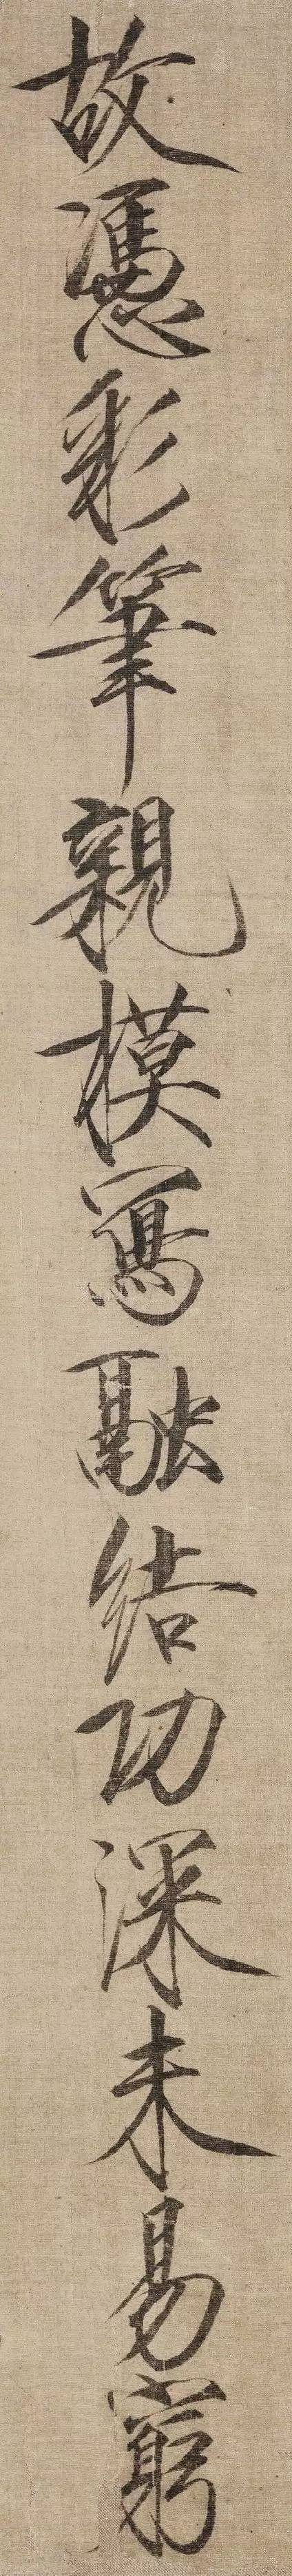 故憑彩筆親模寫融結功深未易窮